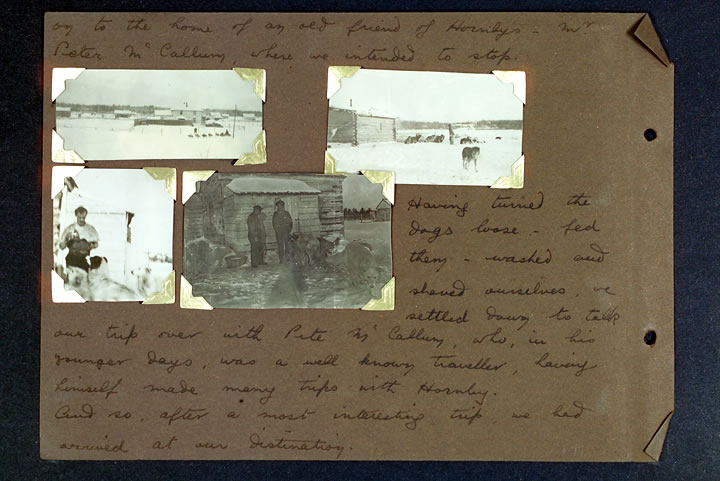 on to the home of an old friend of Hornby's - Mr
Peter McCallum, where we intended to stop.
Having turned the
dogs loose - fed
them - washed and
shaved ourselves, we
settled down to talk
our trip over with Pete McCallum, who, in his
younger days, was a well known traveller, having
himself made many trips with Hornby.
And so, after a most interesting trip, we had
arrived at our distination.